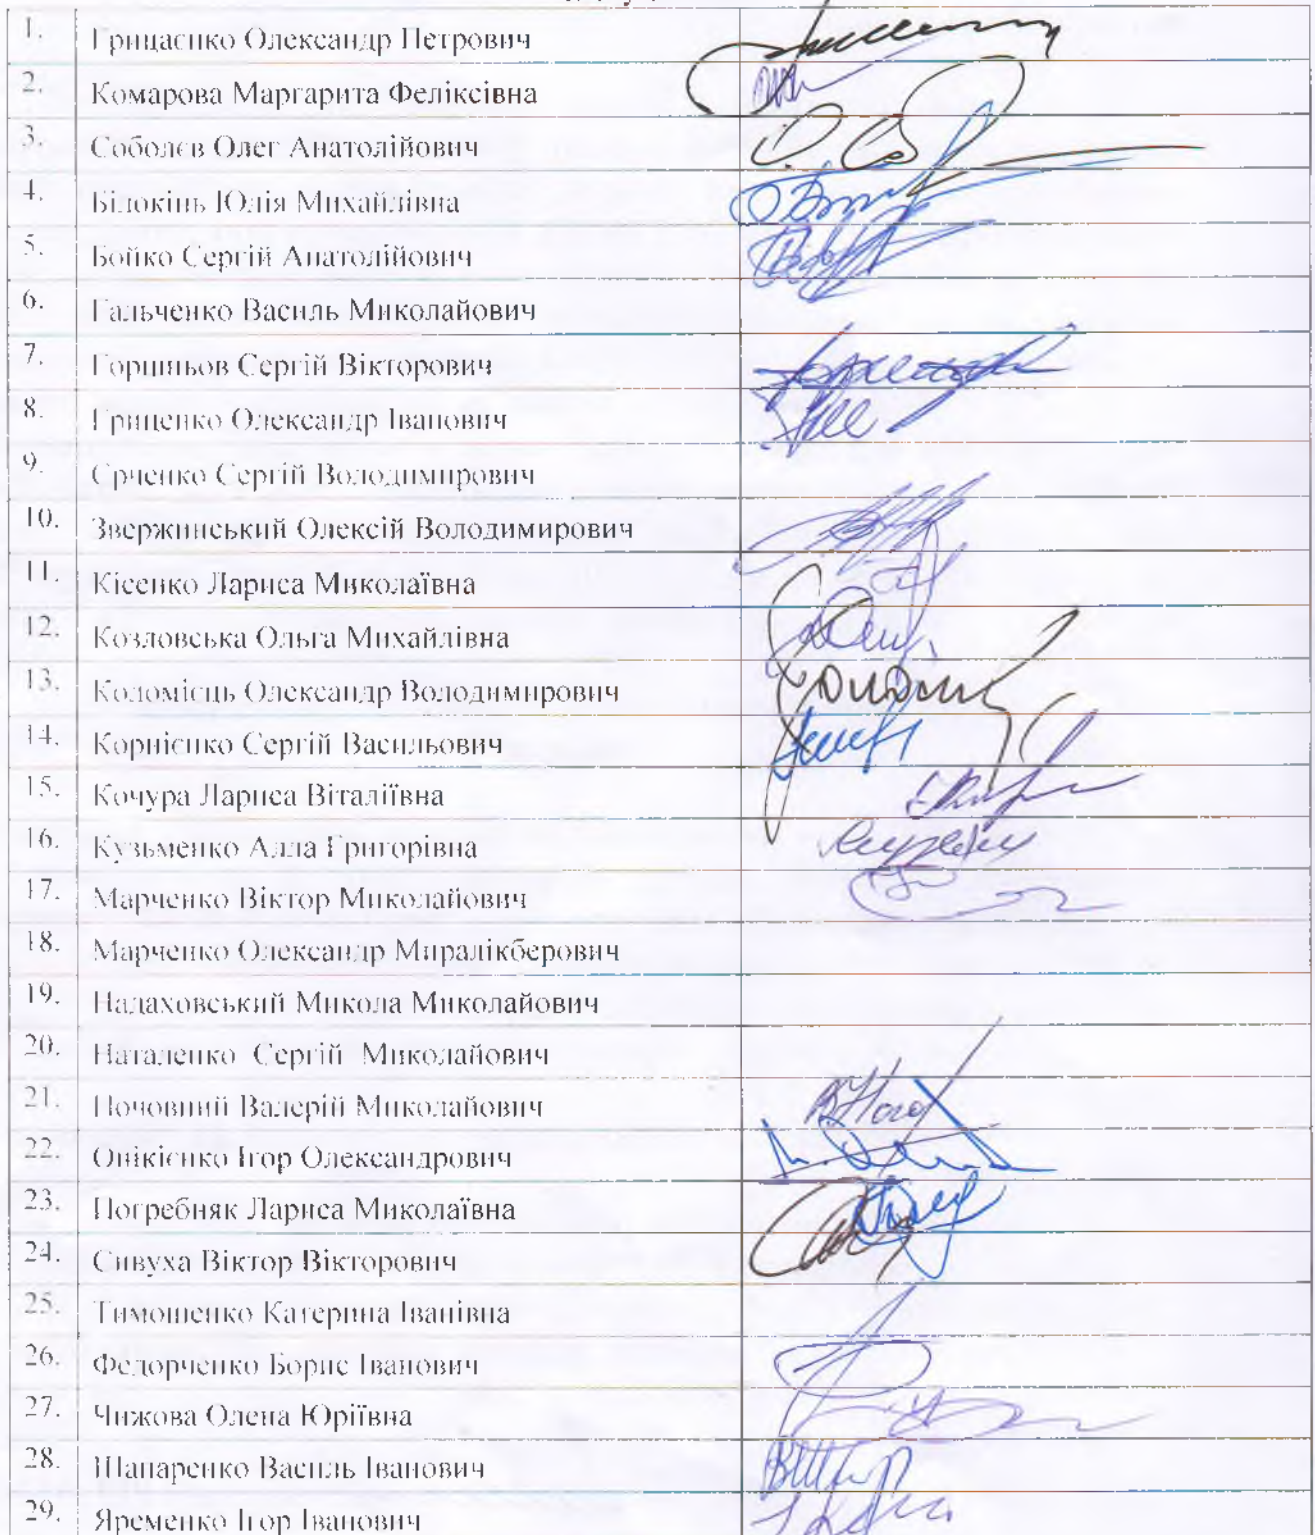 1. Грицаєнко Олександр Петрович
2. Комарова Маргарита Феліксівна
3. Соболєв Олег Анатолійович
4. Білокінь Юлія Михайлівна
5. Бойко Сергій Анатолійович
6. Гальченко Василь Миколайович
7. Горшньов Сергій Вікторович
8. Гриценко Олександр Іванович
9. Єрченко Сергій Володимирович
10. Звержинський Олексій Володимирович
11. Кісенко Лариса Миколаївна
12. Козловська Ольга Михайлівна
13. Коломієць Олександр Володимирович
14. Корнієнко Сергій Васильович
15. Кочура Лариса Віталіївна
16. Кузьменко Алла Григорівна
17. Марченко Віктор Миколайович
18. Марченко Олександр Миралікберович
19. Надаховський Микола Миколайович
20. Наталенко Сергій Миколайович
21. Ночовний Валерій Миколайович
22. Онікієнко Ігор Олександрович
23. Погребняк Лариса Миколаївна
24. Сивуха Віктор Вікторович
25. Тимошенко Катерина Іванівна
26. Федорченко Борис Іванович
27. Чижова Олена Юріївна
28. Шапаренко Василь Іванович
29. Яременко Ігор Іванович